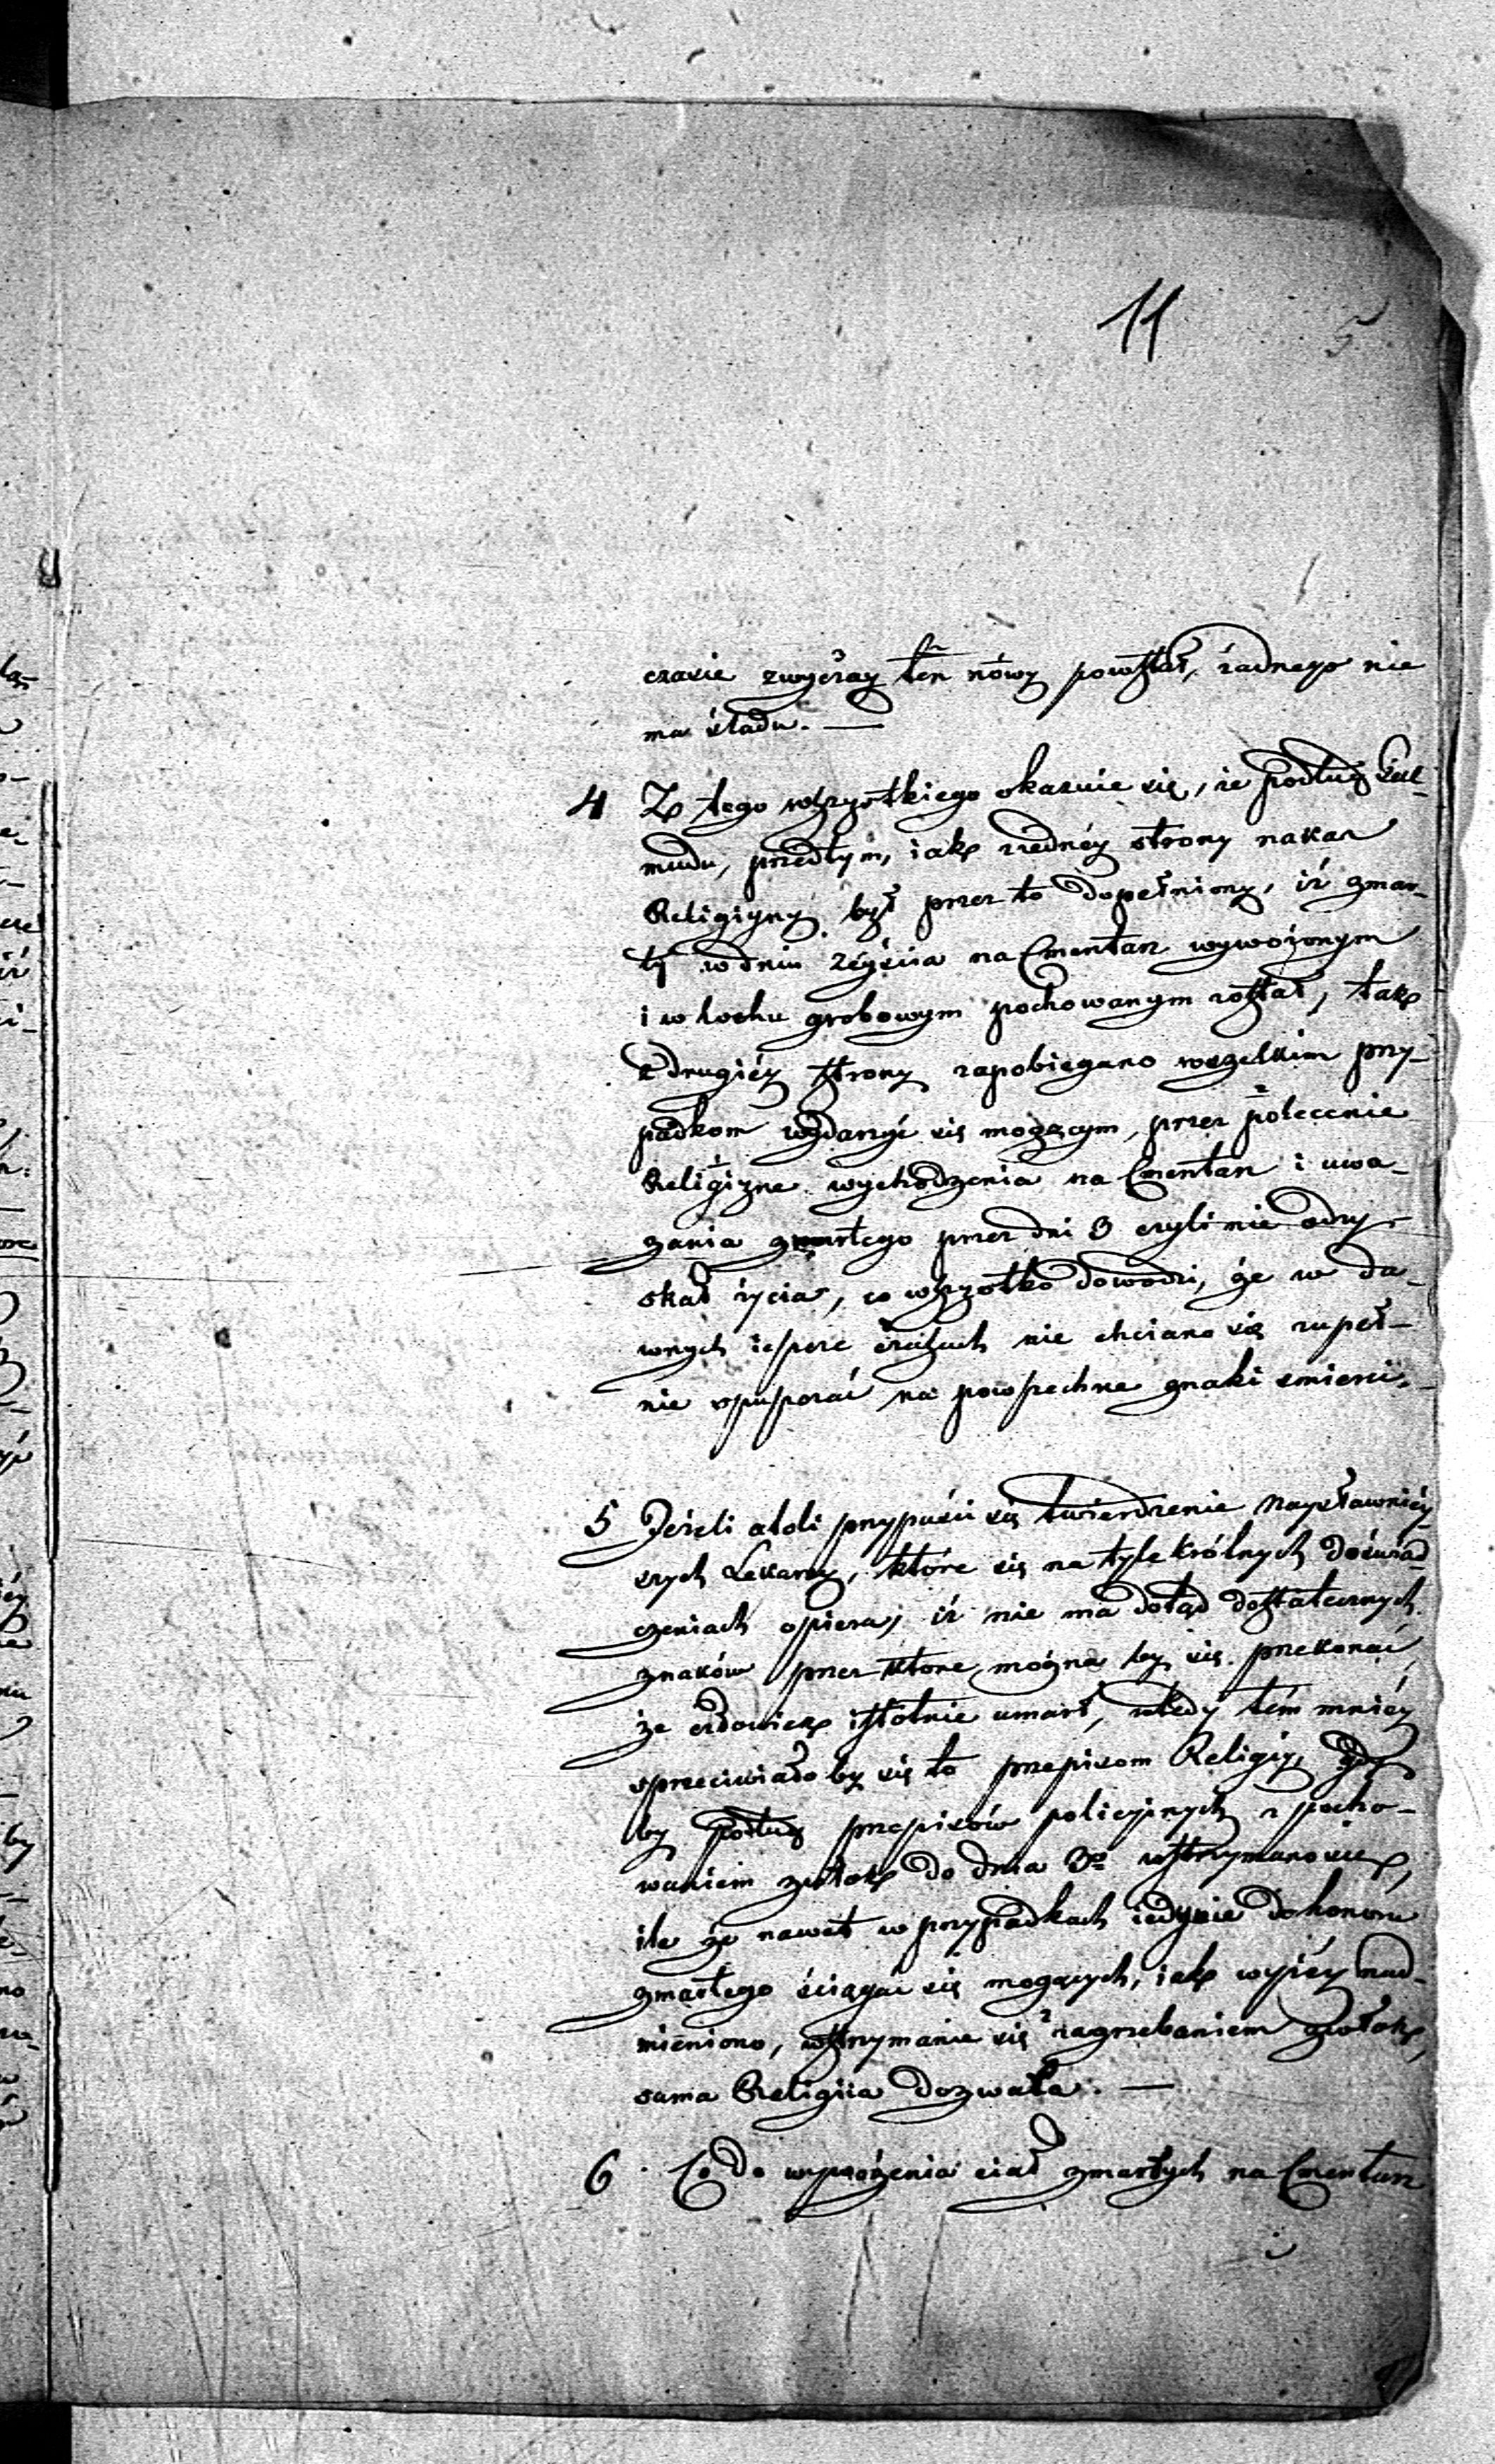 11
5
czasie zwyczay ten nówy powstał, żadnego nie
ma śladu. —
4 Z tego wszystkiego okazuie się, że podług Tal-
mudu, przedtym, iak z iednéy strony nakaz
Religiyny był przez to dopełniony, iż zmar-
ły w dniu zéyścia na Cmentarz wywożonym
i w lochu grobowym pochowanym został, tak
z drugiéy strony zapobiegano wszelkim przy-
padkom wydarzyć się mogącym, przez polecenie
Religiyne wychodzenia na Cmentarz i uwa-
żania zmarłego przez dni 3 czyli nie odzy-
skał życia, co wszystko dowodzi, że w da-
wnych ieszcze czasach nie chciano się zupeł-
nie spuszczać na powszechne znaki śmierci.
5 Jeżeli atoli przypuści się twierdzenie naysławniéy-
szych Lekarzy, które się na tylekrótnych doświad-
czeniach opiera, iż nie ma dotąd dostatecznych
znaków przez które można by się przekonać,
że człowiek istotnie umarł, wtedy tém mniéy
sprzeciwiało by się to przepisom Religiy, gdy
by podług przepisów policyjnych z pocho-
waniem zwłok do dnia 3º wstrzymano się,
ile że nawet w przypadkach iedynie do honoru
zmarłego ściągać się mogących, iak wyżéy nad-
mieniono, wstrzymanie się z zagrzebaniem zwłok,
sama Religiia dozwala. —
6 Co do wyprożenia ciał zmarłych na Cmentarz